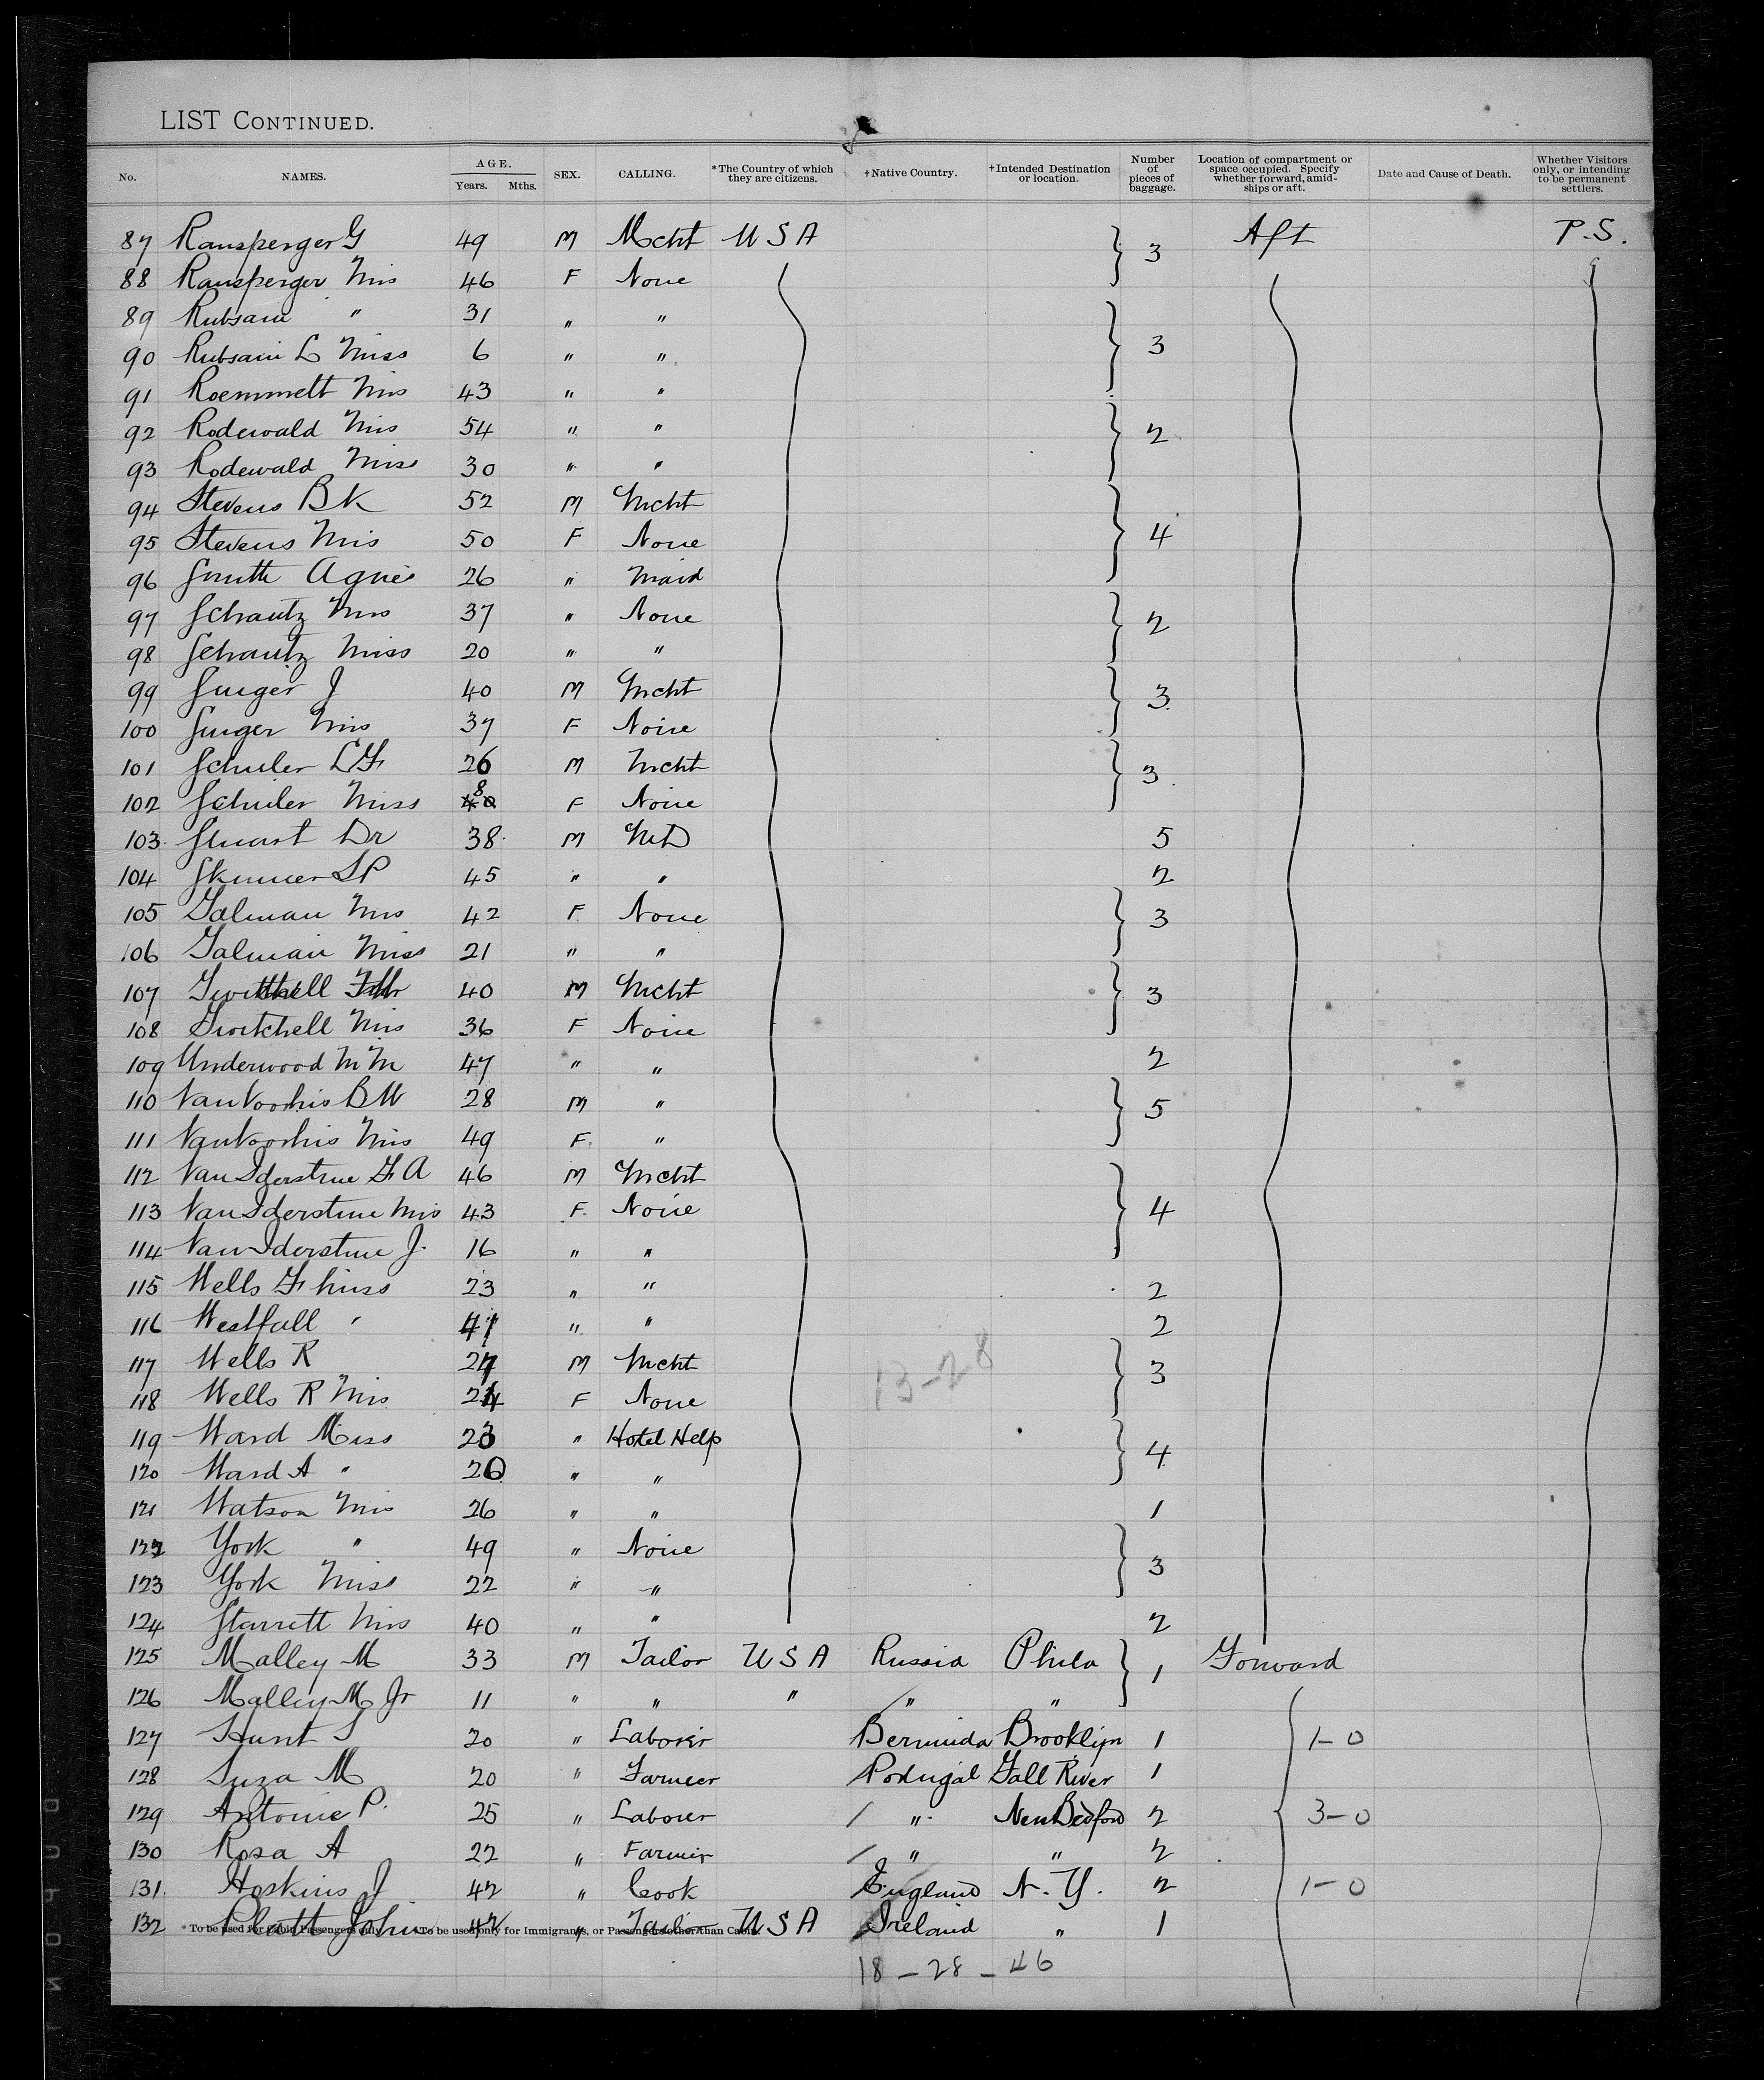 LIST CONTINUED.
No. NAMES. AGE. Years. Mths. SEX. CALLING. *The Country of which they are citizens. †Native Country. †Intended Destination or location. Number of pieces of baggage. Location of compartment or space occupied. Specify whether forward, amidships or aft. Date and Cause of Death. Whether Visitors only, or intending to be permanent settlers.
87 Ransperger G 49 M Mcht U S A 3 Aft P.S.
88 Ransperger Mrs 46 F None
89 Rubsam " 31 " "
90 Rubsam L Miss 6 " " 3
91 Roemmelt Mrs 43 " "
92 Rodewald Mrs 54 " " 2
93 Rodewald Miss 30 " "
94 Stevens B K 52 M Mcht
95 Stevens Mrs 50 F None 4
96 Smith Agnes 26 " Maid
97 Schautz Mrs 37 " None 2
98 Schautz Miss 20 " "
99 Singer J 40 M Mcht 3
100 Singer Mrs 37 F None
101 Schuler 26 M Mcht 3
102 Schuler Miss 8 F None
103 Stuart Dr 38 M MD 5
104 Skinner S P 45 " " 2
105 Talman Mrs 42 F None 3
106 Talman Miss 21 " "
107 Twitchell 40 M Mcht 3
108 Twitchell Mrs 36 F None
109 Underwood M M 47 " " 2
110 Van Voorhis B W 28 M " 5
111 Van Voorhis Mrs 49 F "
112 Van Iderstine F A 46 M Mcht
113 Van Iderstine Mrs 43 F None 4
114 Van Iderstine J. 16 " "
115 Wells F Miss 23 " " 2
116 Westfall " 41 " " 2
117 Wells R 27 M Mcht 13-28 3
118 Wells R Mrs 24 F None
119 Ward Miss 23 " Hotel Help 4
120 Ward A " 20 " "
121 Watson Mrs 26 " " 1
122 York " 49 " None 3
123 York Miss 22 " "
124 Starrett Mrs 40 " " 2
125 Malley M 33 M Tailor U S A Russia Phila 1 Forward
126 Malley M Jr 11 " " " " "
127 Hunt S 20 " Laborer Bermuda Brooklyn 1 1-0
128 Suza M 20 " Farmer Portugal Fall River 1
129 Antonie P. 25 " Laborer " New Bedford 2 3-0
130 Rosa A 22 " Farmer " " 2
131 Hoskins J 42 " Cook England N.Y. 2 1-0
132 Platt John 42 " Tailor U S A Ireland " 1
* To be used for Cabin Passengers only. † To be used only for Immigrants, or Passengers other than Cabin.
18-28-46